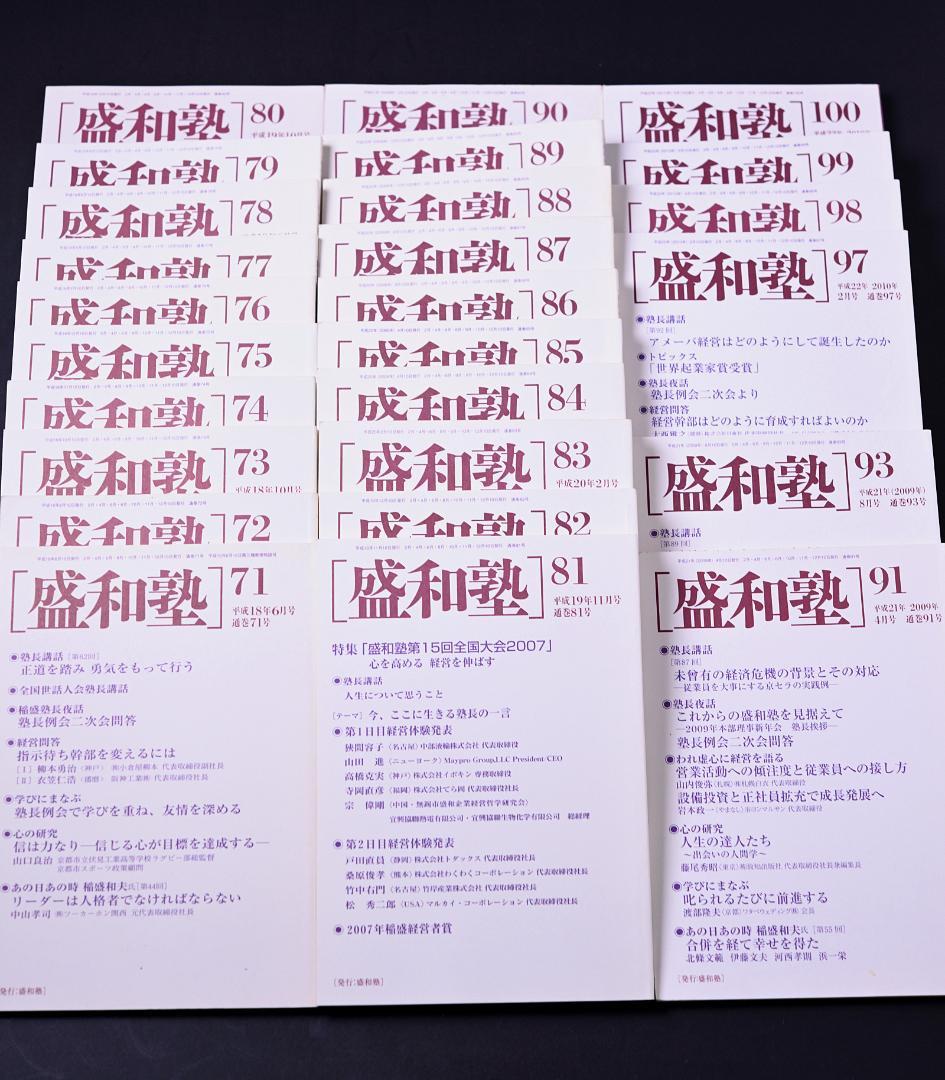 [盛和塾] 80
平成19年10月号
[盛和塾] 79
[盛和塾] 78
[盛和塾] 77
[盛和塾] 76
[盛和塾] 75
[盛和塾] 74
[盛和塾] 73
平成18年10月号
[盛和塾] 72
[盛和塾] 71
平成18年6月号
通巻71号
●塾長講話[第62回]
正道を踏み 勇気をもって行う
●全国世話人会塾長講話
●稲盛塾長夜話
塾長例会二次会問答
●経営問答
指示待ち幹部を変えるには
[Ⅰ]柳本勇治(神戸)㈱小倉屋柳本 代表取締役副長
[Ⅱ]衣笠仁浩(播磨) 阪神工業㈱ 代表取締役社長
●学びにまなぶ
塾長例会で学びを重ね、友情を深める
●心の研究
信は力なり―信じる心が目標を達成する―
山口良治 京都市立伏見工業高等学校ラグビー部総監督
京都市スポーツ政策顧問
●あの日あの時 稲盛和夫氏[第44回]
リーダーは人格者でなければならない
中山孝司 ㈱ツーカーホン関西 元代表取締役社長
[発行:盛和塾]
[盛和塾] 90
[盛和塾] 89
[盛和塾] 88
[盛和塾] 87
[盛和塾] 86
[盛和塾] 85
[盛和塾] 84
[盛和塾] 83
平成20年2月号
[盛和塾] 82
[盛和塾] 81
平成19年11月号
通巻81号
特集「盛和塾第15回全国大会2007」
心を高める 経営を伸ばす
●塾長講話
人生について思うこと
[テーマ]今、ここに生きる塾長の一言
●第1日目経営体験発表
狹間容子(名古屋)中部液輸株式会社 代表取締役
山田 進(ニューヨーク)Maypro Group,LLC President・CEO
高橋克実(神戸)株式会社イボキン 専務取締役
寺岡直彦(福岡)株式会社てら岡 代表取締役社長
宗 偉剛(中国・無錫市盛和企業経営哲学研究会)
宜興協聯熱電有限公司・宜興協聯生物化学有限公司 総経理
●第2日目経営体験発表
戸田直員(静岡)株式会社トダックス 代表取締役社長
桑原俊孝(熊本)株式会社わくわくコーポレーション 代表取締役社長
竹中右門(名古屋)竹岸産業株式会社 代表取締役社長
松 秀二郎(USA)マルカイ・コーポレーション 代表取締役社長
●2007年稲盛経営者賞
[発行:盛和塾]
[盛和塾] 100
[盛和塾] 99
[盛和塾] 98
[盛和塾] 97
平成22年 2010年
2月号 通巻97号
●塾長講話
[第92回]
アメーバ経営はどのようにして誕生したのか
●トピックス
「世界起業家賞受賞」
●塾長夜話
塾長例会二次会より
●経営問答
経営幹部はどのように育成すればよいのか
[盛和塾] 93
平成21年(2009年)
8月号 通巻93号
●塾長講話
[第89回]
[盛和塾] 91
平成21年 2009年
4月号 通巻91号
●塾長講話
[第87回]
未曾有の経済危機の背景とその対応
―従業員を大事にする京セラの実践例―
●塾長夜話
これからの盛和塾を見据えて
―2009年本部理事新年会 塾長挨拶―
塾長例会二次会問答
●われ虚心に経営を語る
営業活動への傾注度と従業員への接し方
山内俊弥(札幌)㈱札幌白衣 代表取締役
設備投資と正社員拡充で成長発展へ
岩本政一(やまなし)㈲ロンマルサン 代表取締役
●心の研究
人生の達人たち
～出会いの人間学～
藤尾秀昭(東京)㈱致知出版社 代表取締役社長兼編集長
●学びにまなぶ
叱られるたびに前進する
渡部隆夫(京都)ワタベウェディング㈱ 会長
●あの日あの時 稲盛和夫氏[第55回]
合併を経て幸せを得た
北條文範 伊藤文夫 河西孝則 浜一栄
[発行:盛和塾]